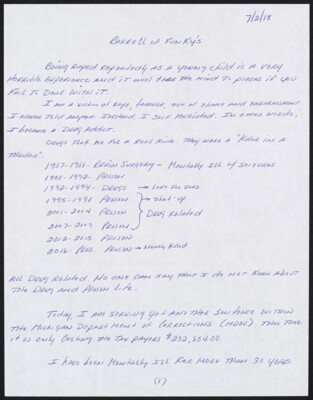 7/2/18
Barrell of Funky's
Being Raped repeatedly as a young child is a very
Horrible Experience and it will tear the mind to pieces if you
Fail To Deal with it.
I am a victim of Rape, however, out of shame and embarrassment
I never told anyone. Instead, I self Medicated. In other words,
I became a Drug Addict.
Drugs Took me for a Real Ride. They were a "Ride in a
1987-1988- Brain Surgery - Mentally Ill w/ Seizures
1988-1992- Prison
1992-1994- Drugs → Left For Dead
1995-1998 Prison → Shot-up
2001-2004 Prison Drug Related
2007-2009 Prison
2012-2015 Prison
2016-Pres. Prison → Nearly Killed
All Drug Related. No one can say that I do not know about
The Drug and Prison Life.
Today, I am serving yet another sentence within
the Michigan Department of Corrections (MDOC). This time
it is only costing the Tax payers $232,854.00.
I have been Mentally Ill for more than 30 years
(1)